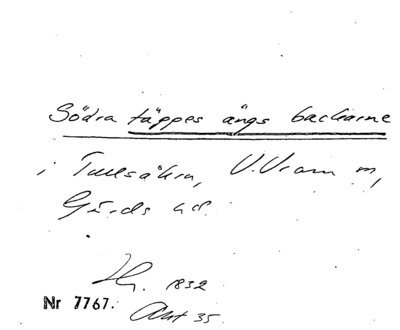 Södra täppes ängs backarne
i Tullsåkra, V. Vram m,
Gärds hd.
Lh. 1832
Nr 7767.
Akt 35.